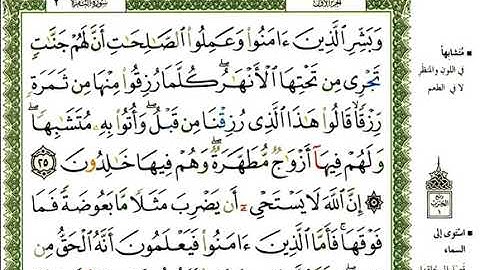 سُورَةُ البَقَرَةِ ٢
الجزء الأول
وَبَشِّرِ ٱلَّذِينَ ءَامَنُوا۟ وَعَمِلُوا۟ ٱلصَّـٰلِحَـٰتِ أَنَّ لَهُمْ جَنَّـٰتٍ
تَجْرِى مِن تَحْتِهَا ٱلْأَنْهَـٰرُ ۖ كُلَّمَا رُزِقُوا۟ مِنْهَا مِن ثَمَرَةٍ
رِّزْقًا ۙ قَالُوا۟ هَـٰذَا ٱلَّذِى رُزِقْنَا مِن قَبْلُ ۖ وَأُتُوا۟ بِهِۦ مُتَشَـٰبِهًا ۖ
وَلَهُمْ فِيهَآ أَزْوَٰجٌ مُّطَهَّرَةٌ ۖ وَهُمْ فِيهَا خَـٰلِدُونَ ٢٥
۞ إِنَّ ٱللَّهَ لَا يَسْتَحْىِۦٓ أَن يَضْرِبَ مَثَلًا مَّا بَعُوضَةً فَمَا
فَوْقَهَا ۚ فَأَمَّا ٱلَّذِينَ ءَامَنُوا۟ فَيَعْلَمُونَ أَنَّهُ ٱلْحَقُّ مِن
■ مُتَشابهاً
في اللون والمنظر
لا في الطعم
ربع
الحزب
١
■ استوى إلى
السماء